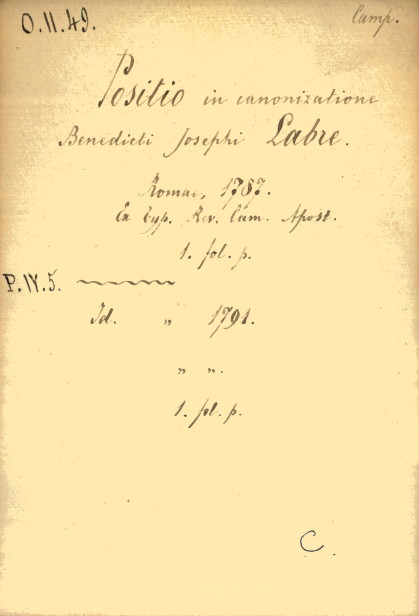 O.II.49.
Camp.
Positio in canonizatione
Benedicti Josephi Labre.
Romae, 1787.
Ex typ. Rev. Cam. Apost.
1. fol. p.
P.IV.5.
Id. „ 1791.
„ „.
1. fol. p.
C.